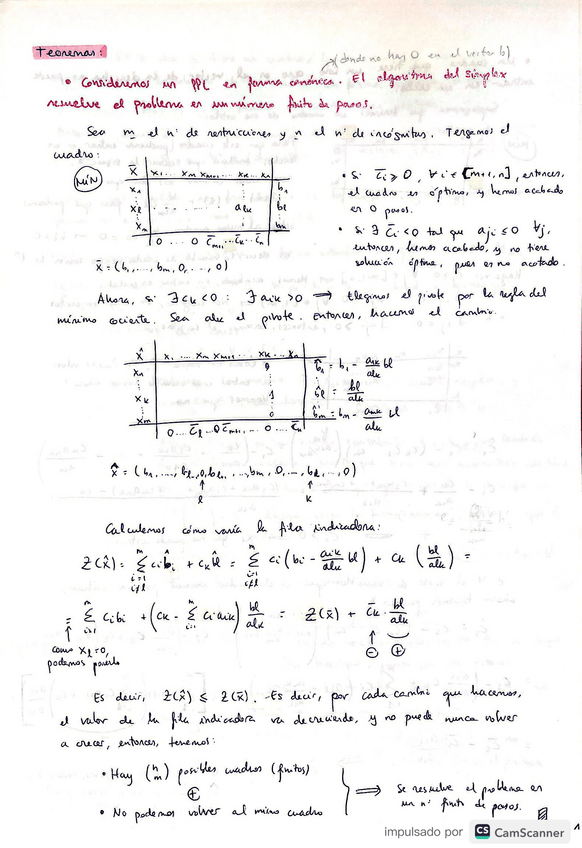 Teoremas:
(donde no hay 0 en el vector b)
• Consideremos un PPL en forma canónica. El algoritmo del simplex
resuelve el problema en un número finito de pasos.
Sea m el nº de restricciones y n el nº de incógnitas. Tengamos el
cuadro:
MIN
x̄ x₁ ... xm xm+1 ... xk ... xn
x₁ b₁
xℓ aℓk bℓ
xm bm
0 ... 0 c̄m+1 ... c̄k ... c̄n
x̄ = (b₁, ..., bm, 0, ..., 0)
• Si c̄i ≥ 0, ∀ i ∈ [m+1, n], entonces,
el cuadro es óptimo, y hemos acabado
en 0 pasos.
• Si ∃ c̄i < 0 tal que aji ≤ 0 ∀j,
entonces, hemos acabado, y no tiene
solución óptima, pues es no acotado.
Ahora, si ∃ ck < 0 : ∃ aik > 0 ⟹ Elegimos el pivote por la regla del
mínimo cociente. Sea aℓk el pivote. Entonces, hacemos el cambio.
x̂ x₁ ... xm xm+1 ... xk ... xn
x₁ 0 b̂₁ = b₁ - a₁k/aℓk bℓ
xk 1 b̂ℓ = bℓ/aℓk
xm 0 b̂m = bm - amk/aℓk bℓ
0 ... c̄ℓ ... 0 c̄m+1 ... 0 ... c̄n
x̂ = (b₁, ..., bℓ-1, 0, bℓ+1, ..., bm, 0, ..., bℓ, ..., 0)
↑ ↑
ℓ k
Calculemos cómo varía la fila indicadora:
Z(x̂) = Σ(i=1, i≠ℓ)^m ci b̂i + ck b̂ℓ = Σ(i=1, i≠ℓ)^m ci (bi - aik/aℓk bℓ) + ck (bℓ/aℓk) =
= Σ(i=1)^m ci bi + (ck - Σ(i=1)^m ci aik) bℓ/aℓk = Z(x̄) + c̄k · bℓ/aℓk
↑ ↑
como xℓ=0, ⊖ ⊕
podemos ponerlo
Es decir, Z(x̂) ≤ Z(x̄). Es decir, por cada cambio que hacemos,
el valor de la fila indicadora va decreciendo, y no puede nunca volver
a crecer, entonces, tenemos:
• Hay (n m) posibles cuadros (finitos)
⊕
• No podemos volver al mismo cuadro
⟹ Se resuelve el problema en
un nº finito de pasos.
1
impulsado por CS CamScanner